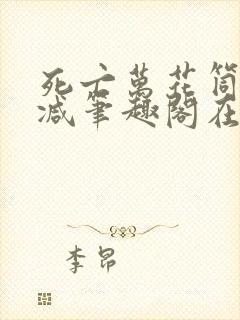 死亡萬花筒
减筆趣閣在
李昂